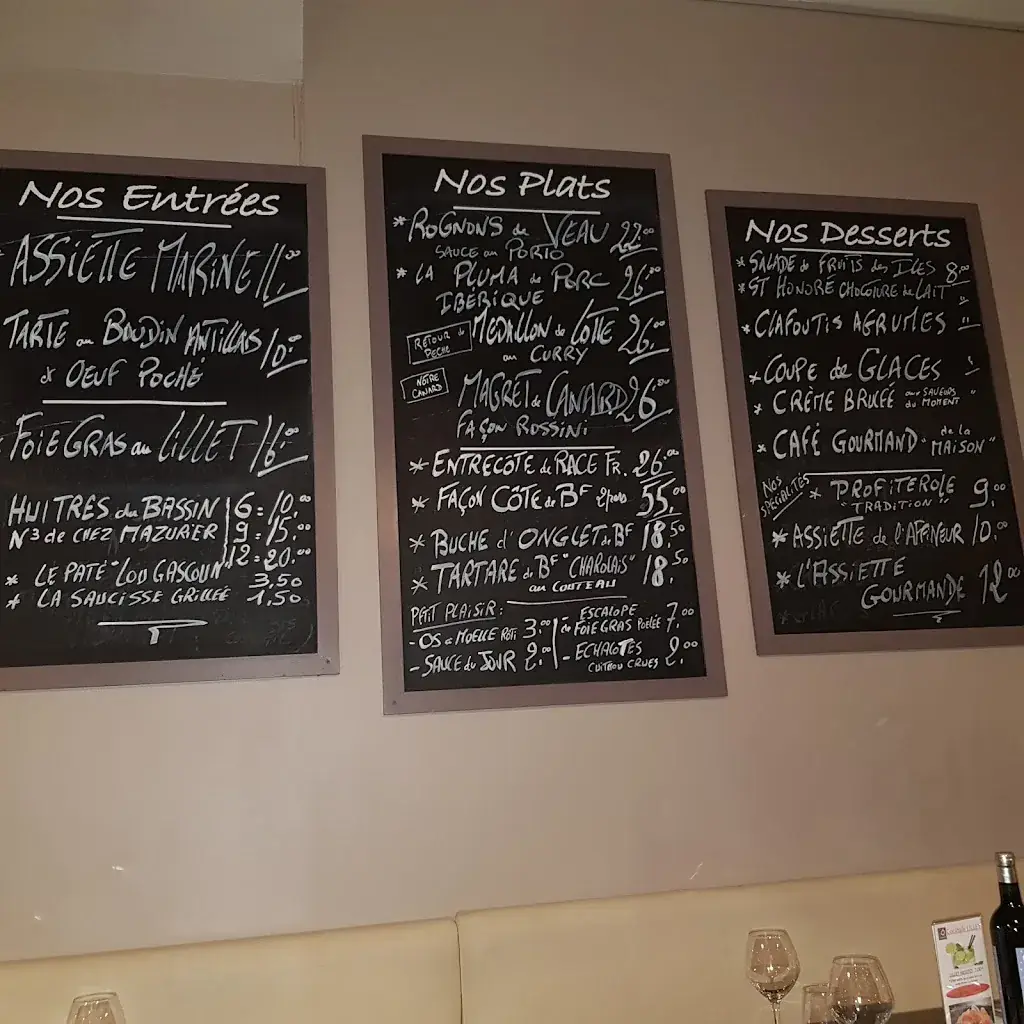 Nos Entrées
ASSIETTE MARINE 11.00
TARTE au BOUDIN ANTILLAIS 10.00
& OEUF POCHÉ
FOIE GRAS au LILLET 16.00
HUITRES du BASSIN 6 = 10.00
N°3 de CHEZ MAZURIER 9 = 15.00
12 = 20.00
* LE PATÉ "LOU GASCOUN" 3,50
* LA SAUCISSE GRILLÉE 1,50
Nos Plats
* ROGNONS de VEAU 22.00
SAUCE au PORTO
* LA PLUMA de PORC 26.00
IBERIQUE
RETOUR de PECHE MEDAILLON de LOTTE 26.00
au CURRY
NOTRE CANARD MAGRET de CANARD 26.00
FAÇON ROSSINI
* ENTRECOTE de RACE FR. 26.00
* FAÇON CÔTE de BF 2 pers 55.00
* BUCHE d'ONGLET de BF 18.50
* TARTARE de BF "CHAROLAIS" 18.50
au COUTEAU
PETIT PLAISIR:
- OS à MOELLE RÔTI 3.00
- SAUCE du JOUR 2.00
- ESCALOPE
de FOIE GRAS POELÉE 7.00
- ECHALOTES 2.00
CUITS OU CRUES
Nos Desserts
* SALADE de FRUITS des ILES 8.00
* ST HONORÉ CHOCOLAT au LAIT "
* CLAFOUTIS AGRUMES "
* COUPE de GLACES "
* CRÈME BRULÉE aux SAVEURS du MOMENT "
* CAFÉ GOURMAND "de la MAISON"
NOS SPÉCIALITÉS * PROFITEROLE 9.00
"TRADITION"
* ASSIETTE de l'AFFINEUR 10.00
* L'ASSIETTE
GOURMANDE 12.00